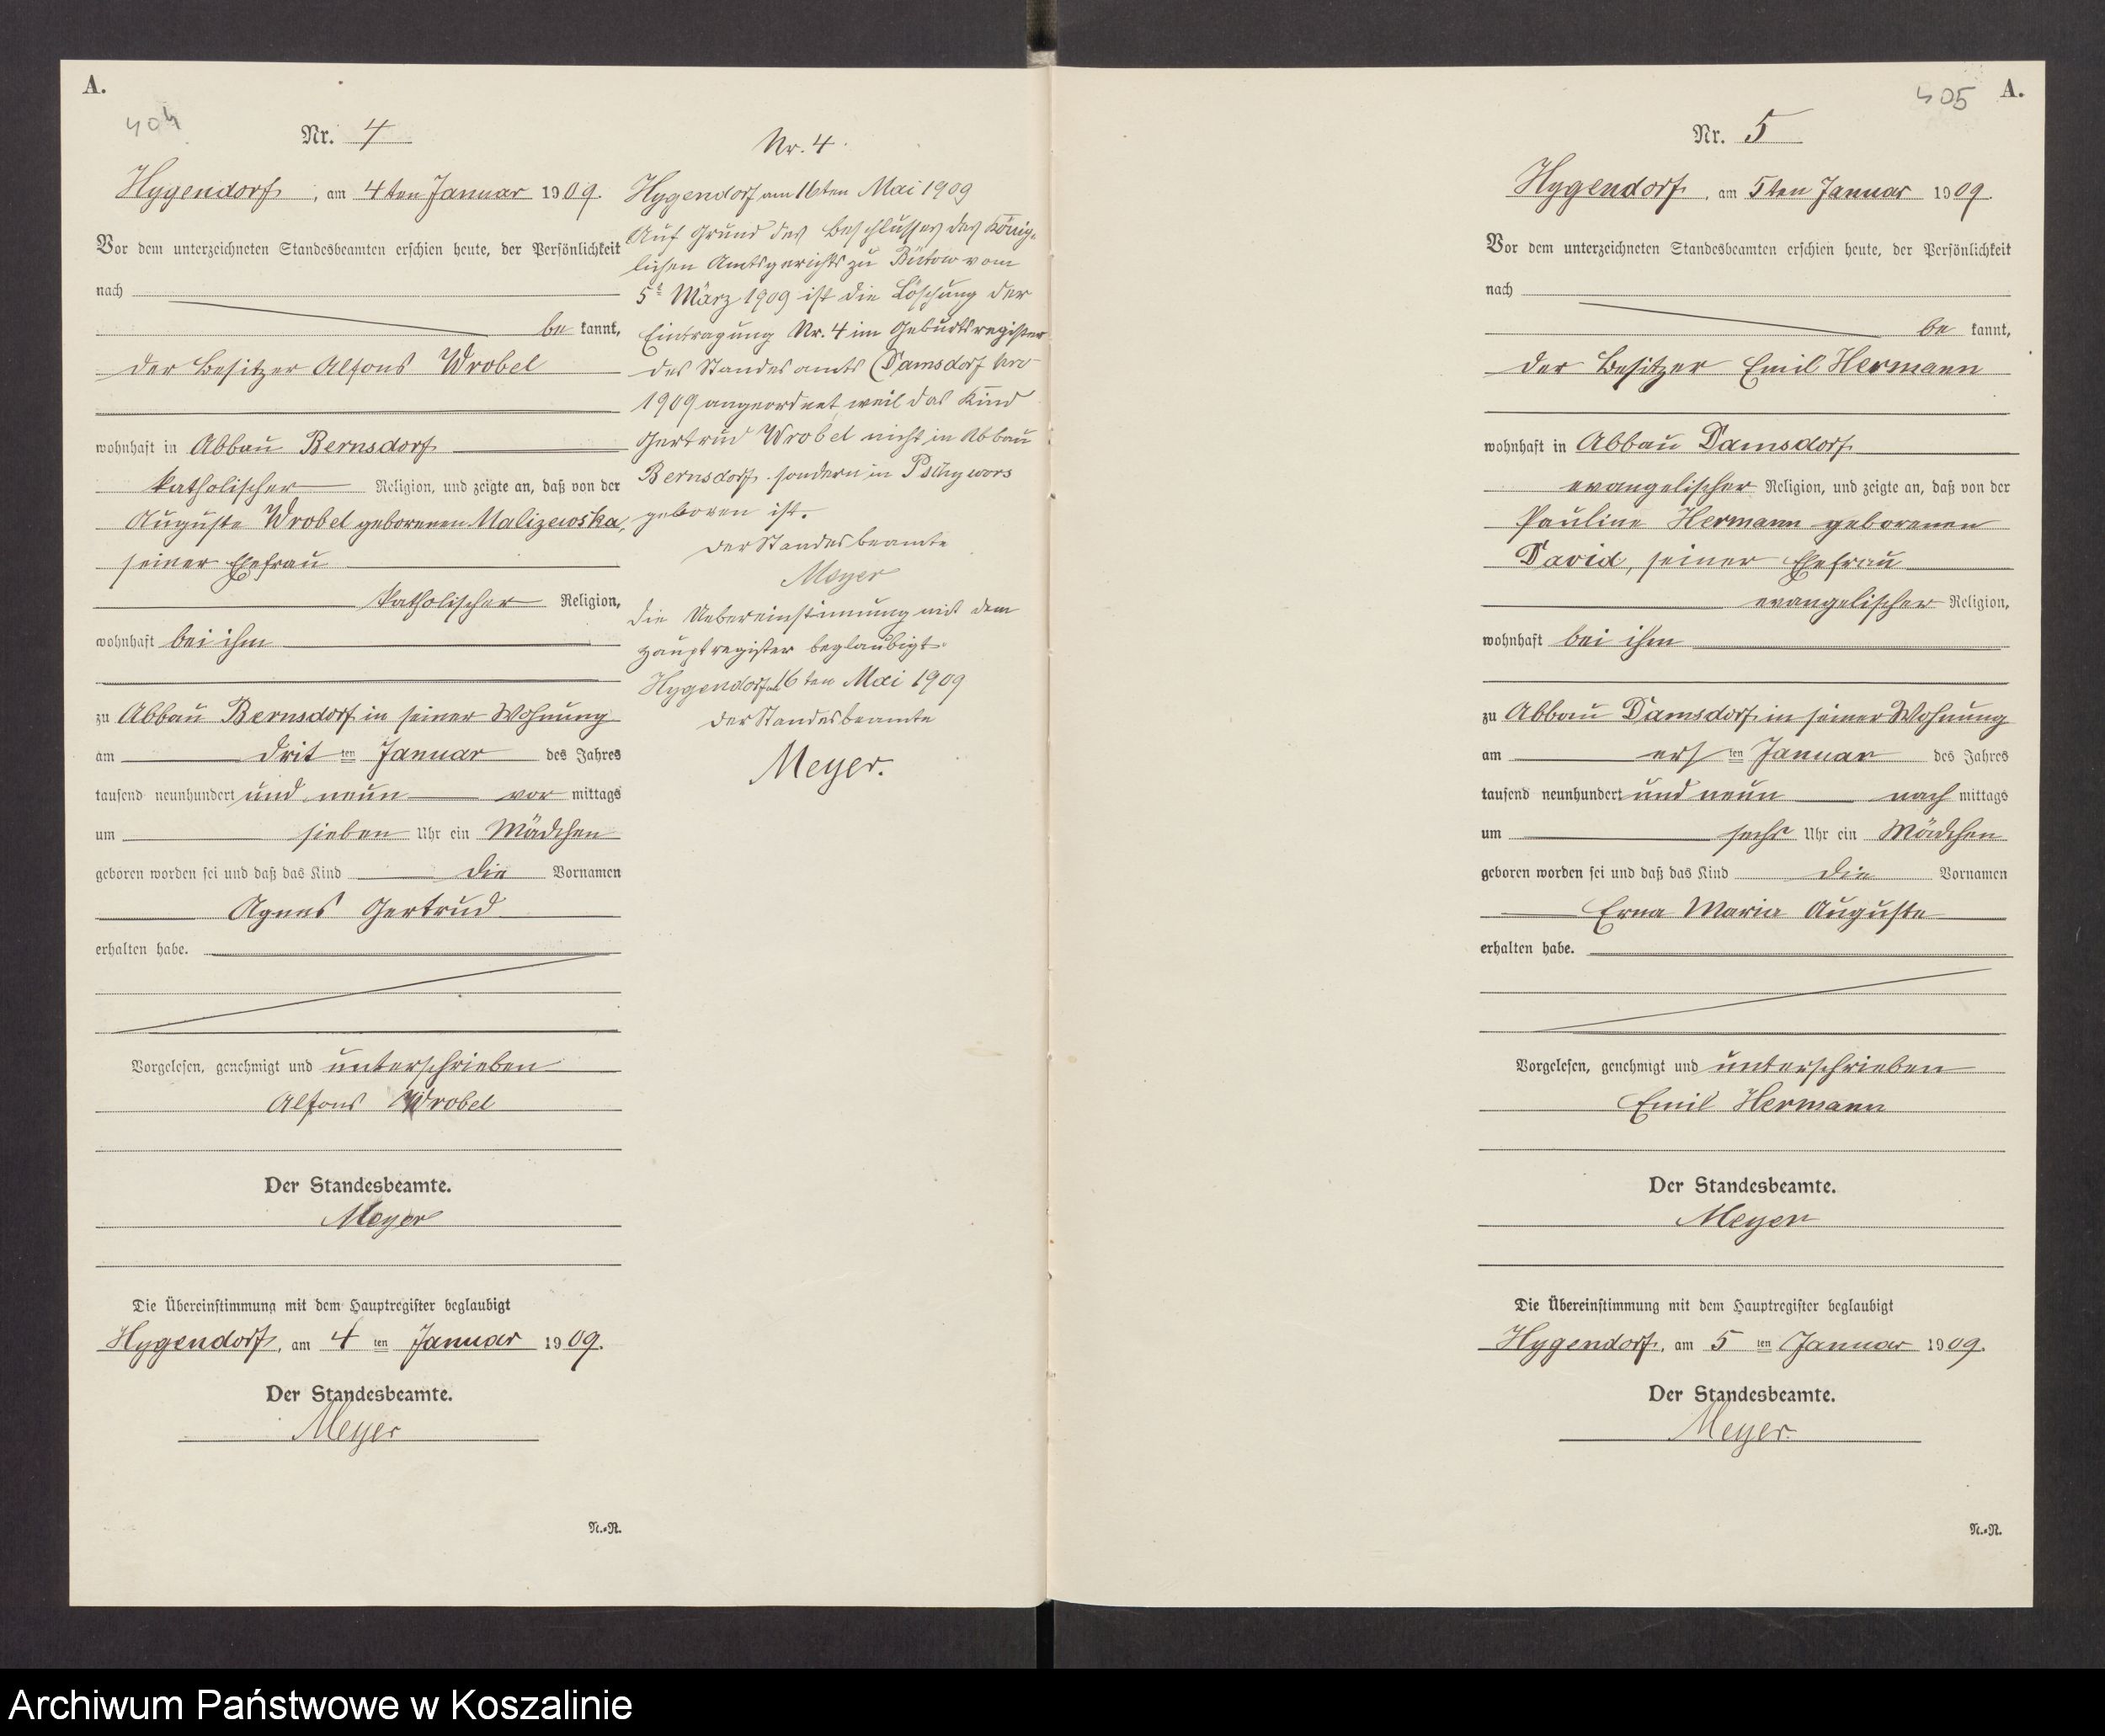 A.
404
Nr. 4
Hygendorf, am 4ten Januar 1909.
Vor dem unterzeichneten Standesbeamten erschien heute, der Persönlichkeit
nach
be kannt,
der Besitzer Alfons Wrobel
wohnhaft in Abbau Bernsdorf
katholischer Religion, und zeigte an, daß von der
Auguste Wrobel geborenen Malizewska,
seiner Ehefrau
katholischer Religion,
wohnhaft bei ihm
zu Abbau Bernsdorf in seiner Wohnung
am drit ten Januar des Jahres
tausend neunhundert und neun vor mittags
um sieben Uhr ein Mädchen
geboren worden sei und daß das Kind die Vornamen
Agnes Gertrud
erhalten habe.
Vorgelesen, genehmigt und unterschrieben
Alfons Wrobel
Der Standesbeamte.
Meyer
Die Übereinstimmung mit dem Hauptregister beglaubigt
Hygendorf, am 4 ten Januar 1909.
Der Standesbeamte.
Meyer
N.=N.
Nr. 4.
Hygendorf am 16ten Mai 1909
Auf Grund des Beschlusses des König-
lichen Amtsgerichts zu Bütow vom
5t März 1909 ist die Löschung der
Eintragung Nr. 4 im Geburtsregister
des Standesamts Damsdorf pro
1909 angeordnet weil das Kind
Gertrud Wrobel nicht in Abbau
Bernsdorf sondern in
geboren ist.
Der Standesbeamte
Meyer
Die Uebereinstimmung mit dem
Hauptregister beglaubigt.
Hygendorf am 16ten Mai 1909
Der Standesbeamte
Meyer.
405
A.
Nr. 5
Hygendorf, am 5ten Januar 1909.
Vor dem unterzeichneten Standesbeamten erschien heute, der Persönlichkeit
nach
be kannt,
der Besitzer Emil Hermann
wohnhaft in Abbau Damsdorf
evangelischer Religion, und zeigte an, daß von der
Pauline Hermann geborenen
David, seiner Ehefrau
evangelischer Religion,
wohnhaft bei ihm
zu Abbau Damsdorf in seiner Wohnung
am ers ten Januar des Jahres
tausend neunhundert und neun nach mittags
um sechs Uhr ein Mädchen
geboren worden sei und daß das Kind die Vornamen
Erna Maria Auguste
erhalten habe.
Vorgelesen, genehmigt und unterschrieben
Emil Hermann
Der Standesbeamte.
Meyer
Die Übereinstimmung mit dem Hauptregister beglaubigt
Hygendorf, am 5 ten Januar 1909.
Der Standesbeamte.
Meyer.
N.=N.
Archiwum Państwowe w Koszalinie